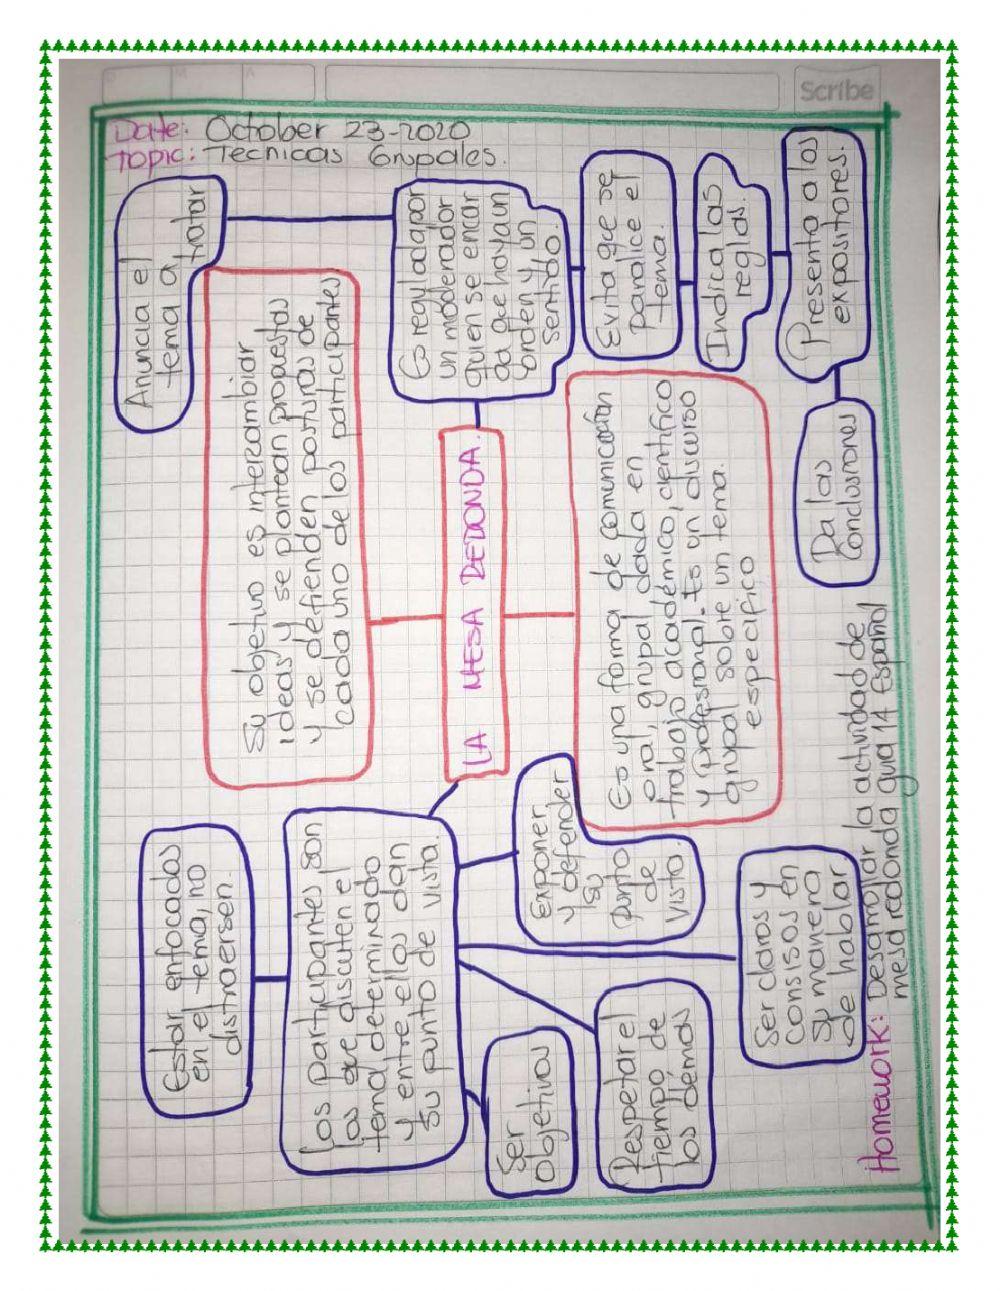 Scribe
Date: October 23-2020
Topic: Tecnicas Grupales.
Anuncia el
tema a
tratar
Su objetivo es intercambiar
ideas y se plantean propuestas
y se defienden posturas de
cada uno de los participantes
Es regulada por
un moderador
quien se encar
ga que haya un
orden y un
sentido.
Evita que se
paralice el
tema.
Indica las
reglas.
Presenta a los
expositores.
Da las
conclusiones
LA MESA REDONDA.
Es una forma de comunicación
oral, grupal dada en
trabajo académico, científico
y profesional. Es un discurso
grupal sobre un tema
específico
Estar enfocados
en el tema, no
distraersen.
Los participantes son
los que discuten el
tema determinado
y entre ellos dan
su punto de vista.
Exponer
y defender
su
punto
de
vista.
Ser
objetivos
Respetar el
tiempo de
los demás
Ser claros y
consisos en
su manera
de hablar
Homework: Desarrollar la actividad de
mesa redonda guia 14 Español